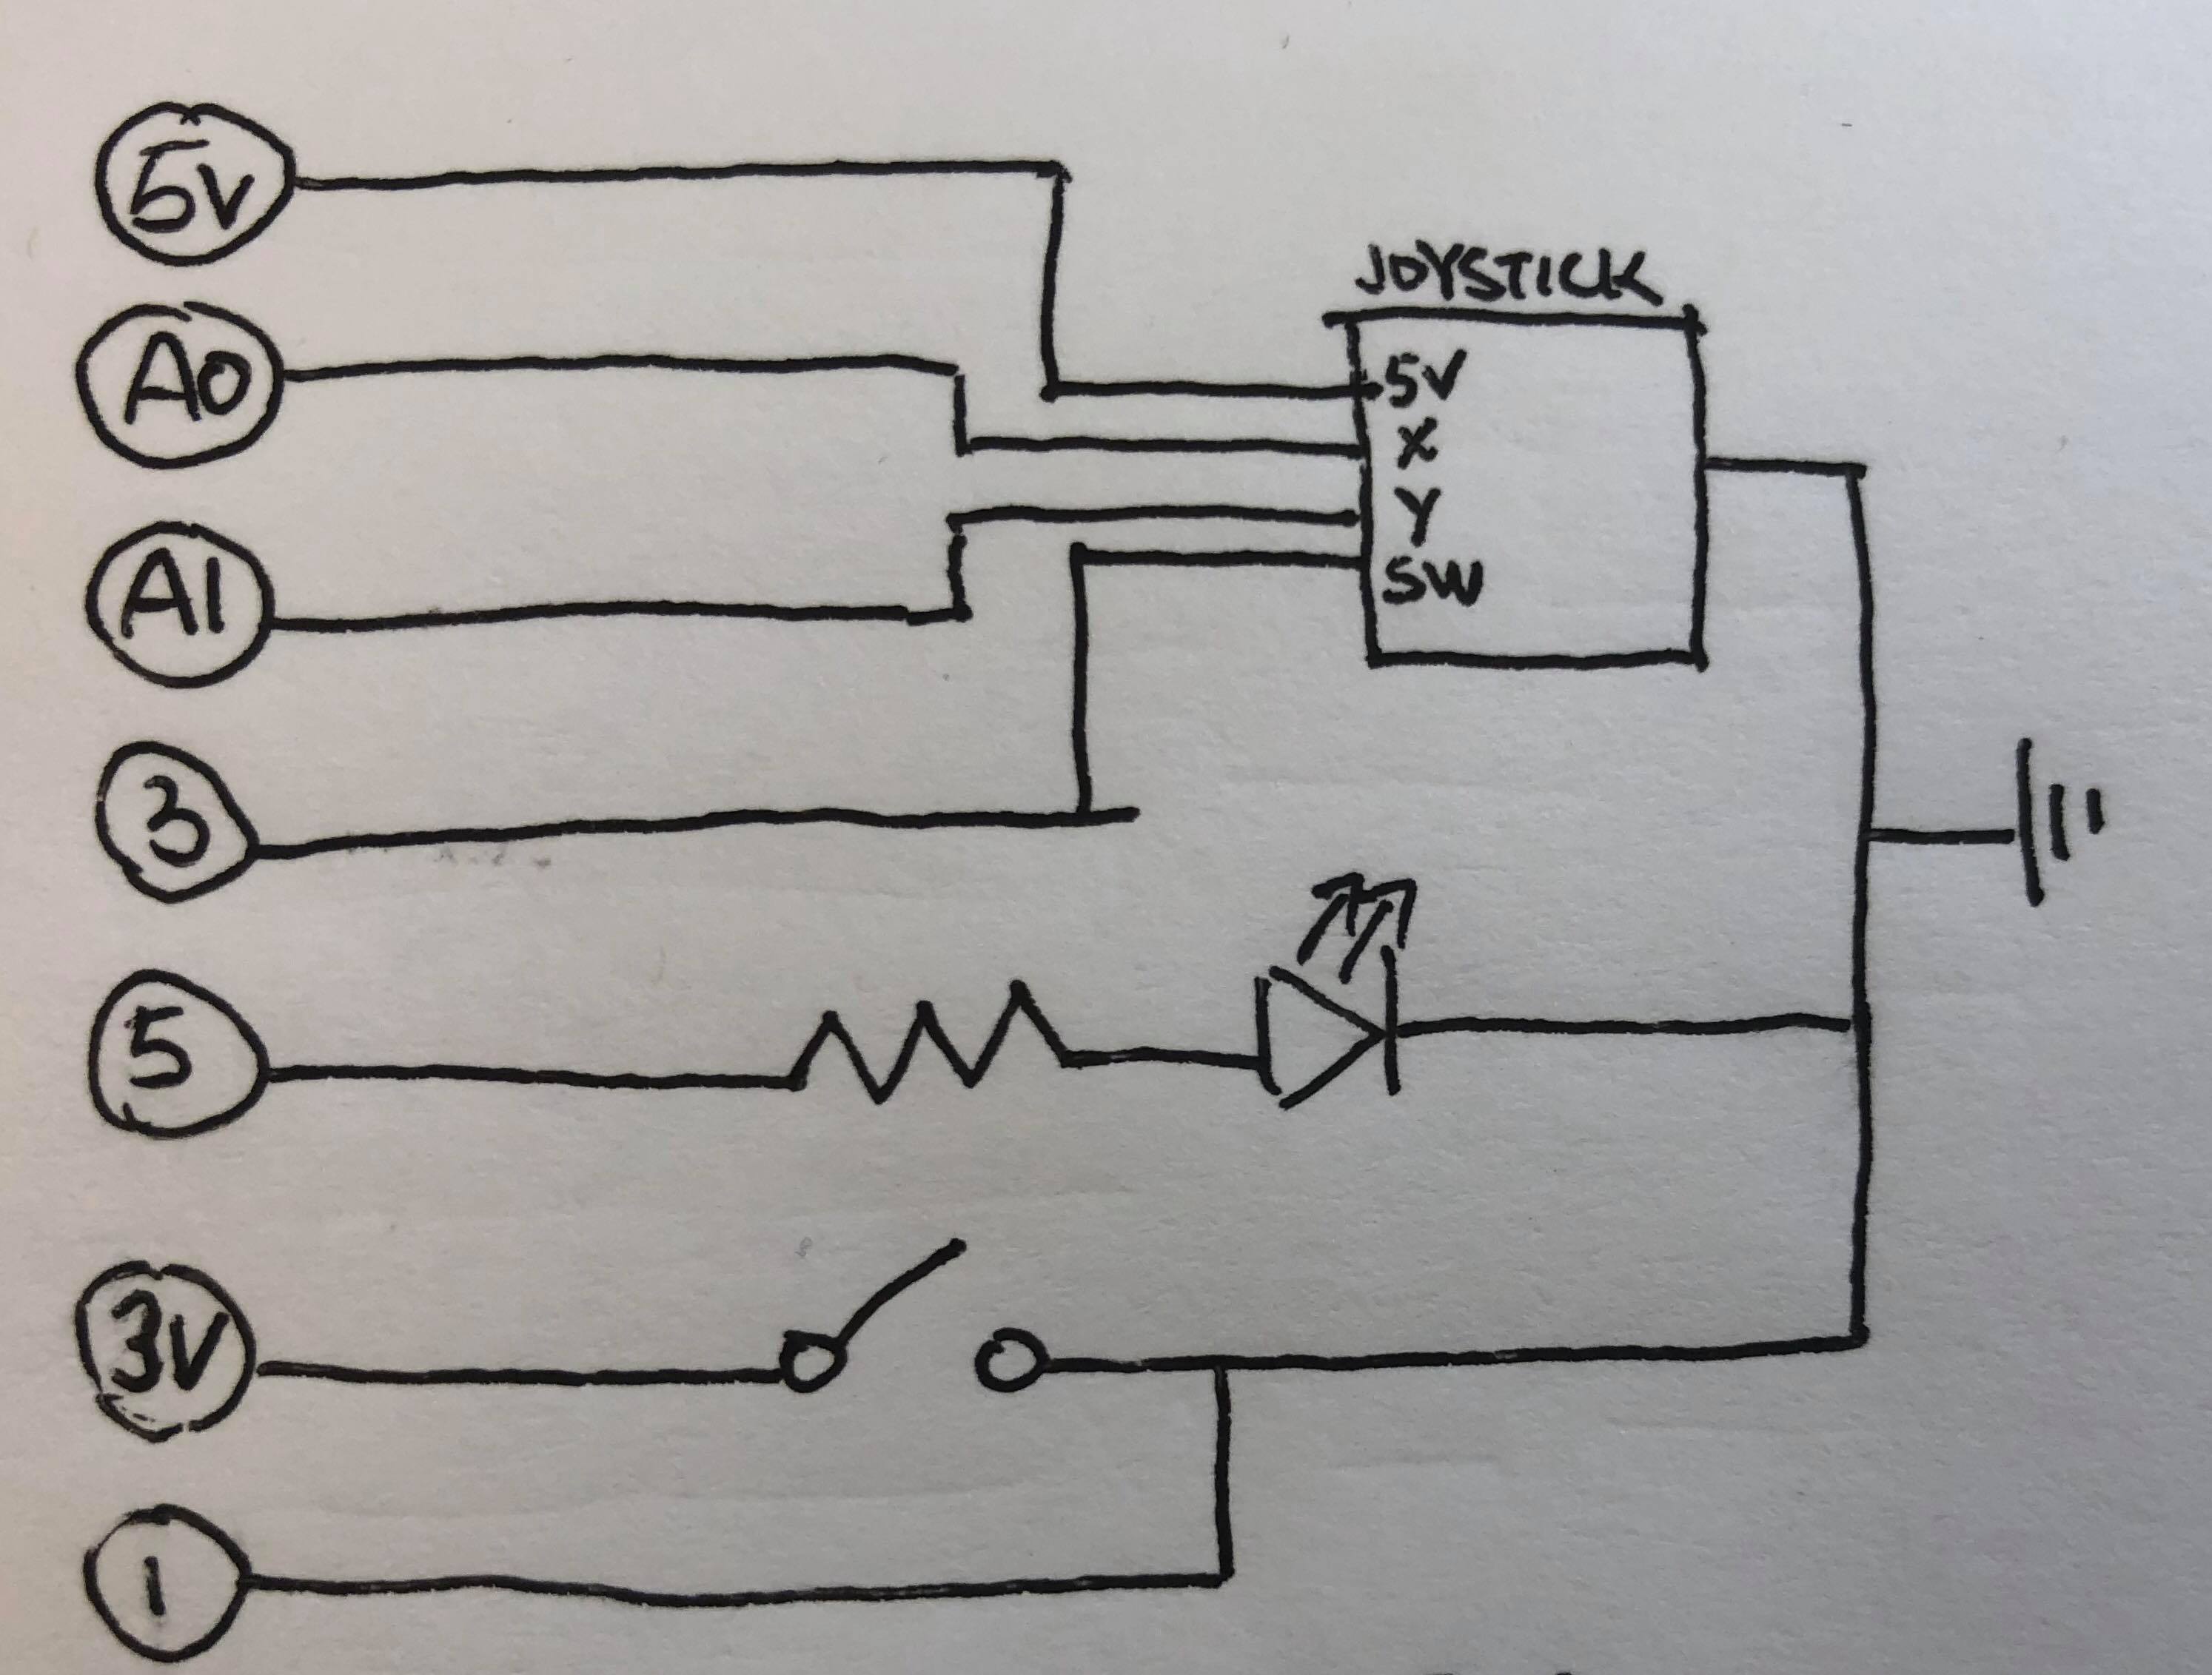 5V
A0
A1
3
5
3V
1
JOYSTICK
5V
X
Y
SW